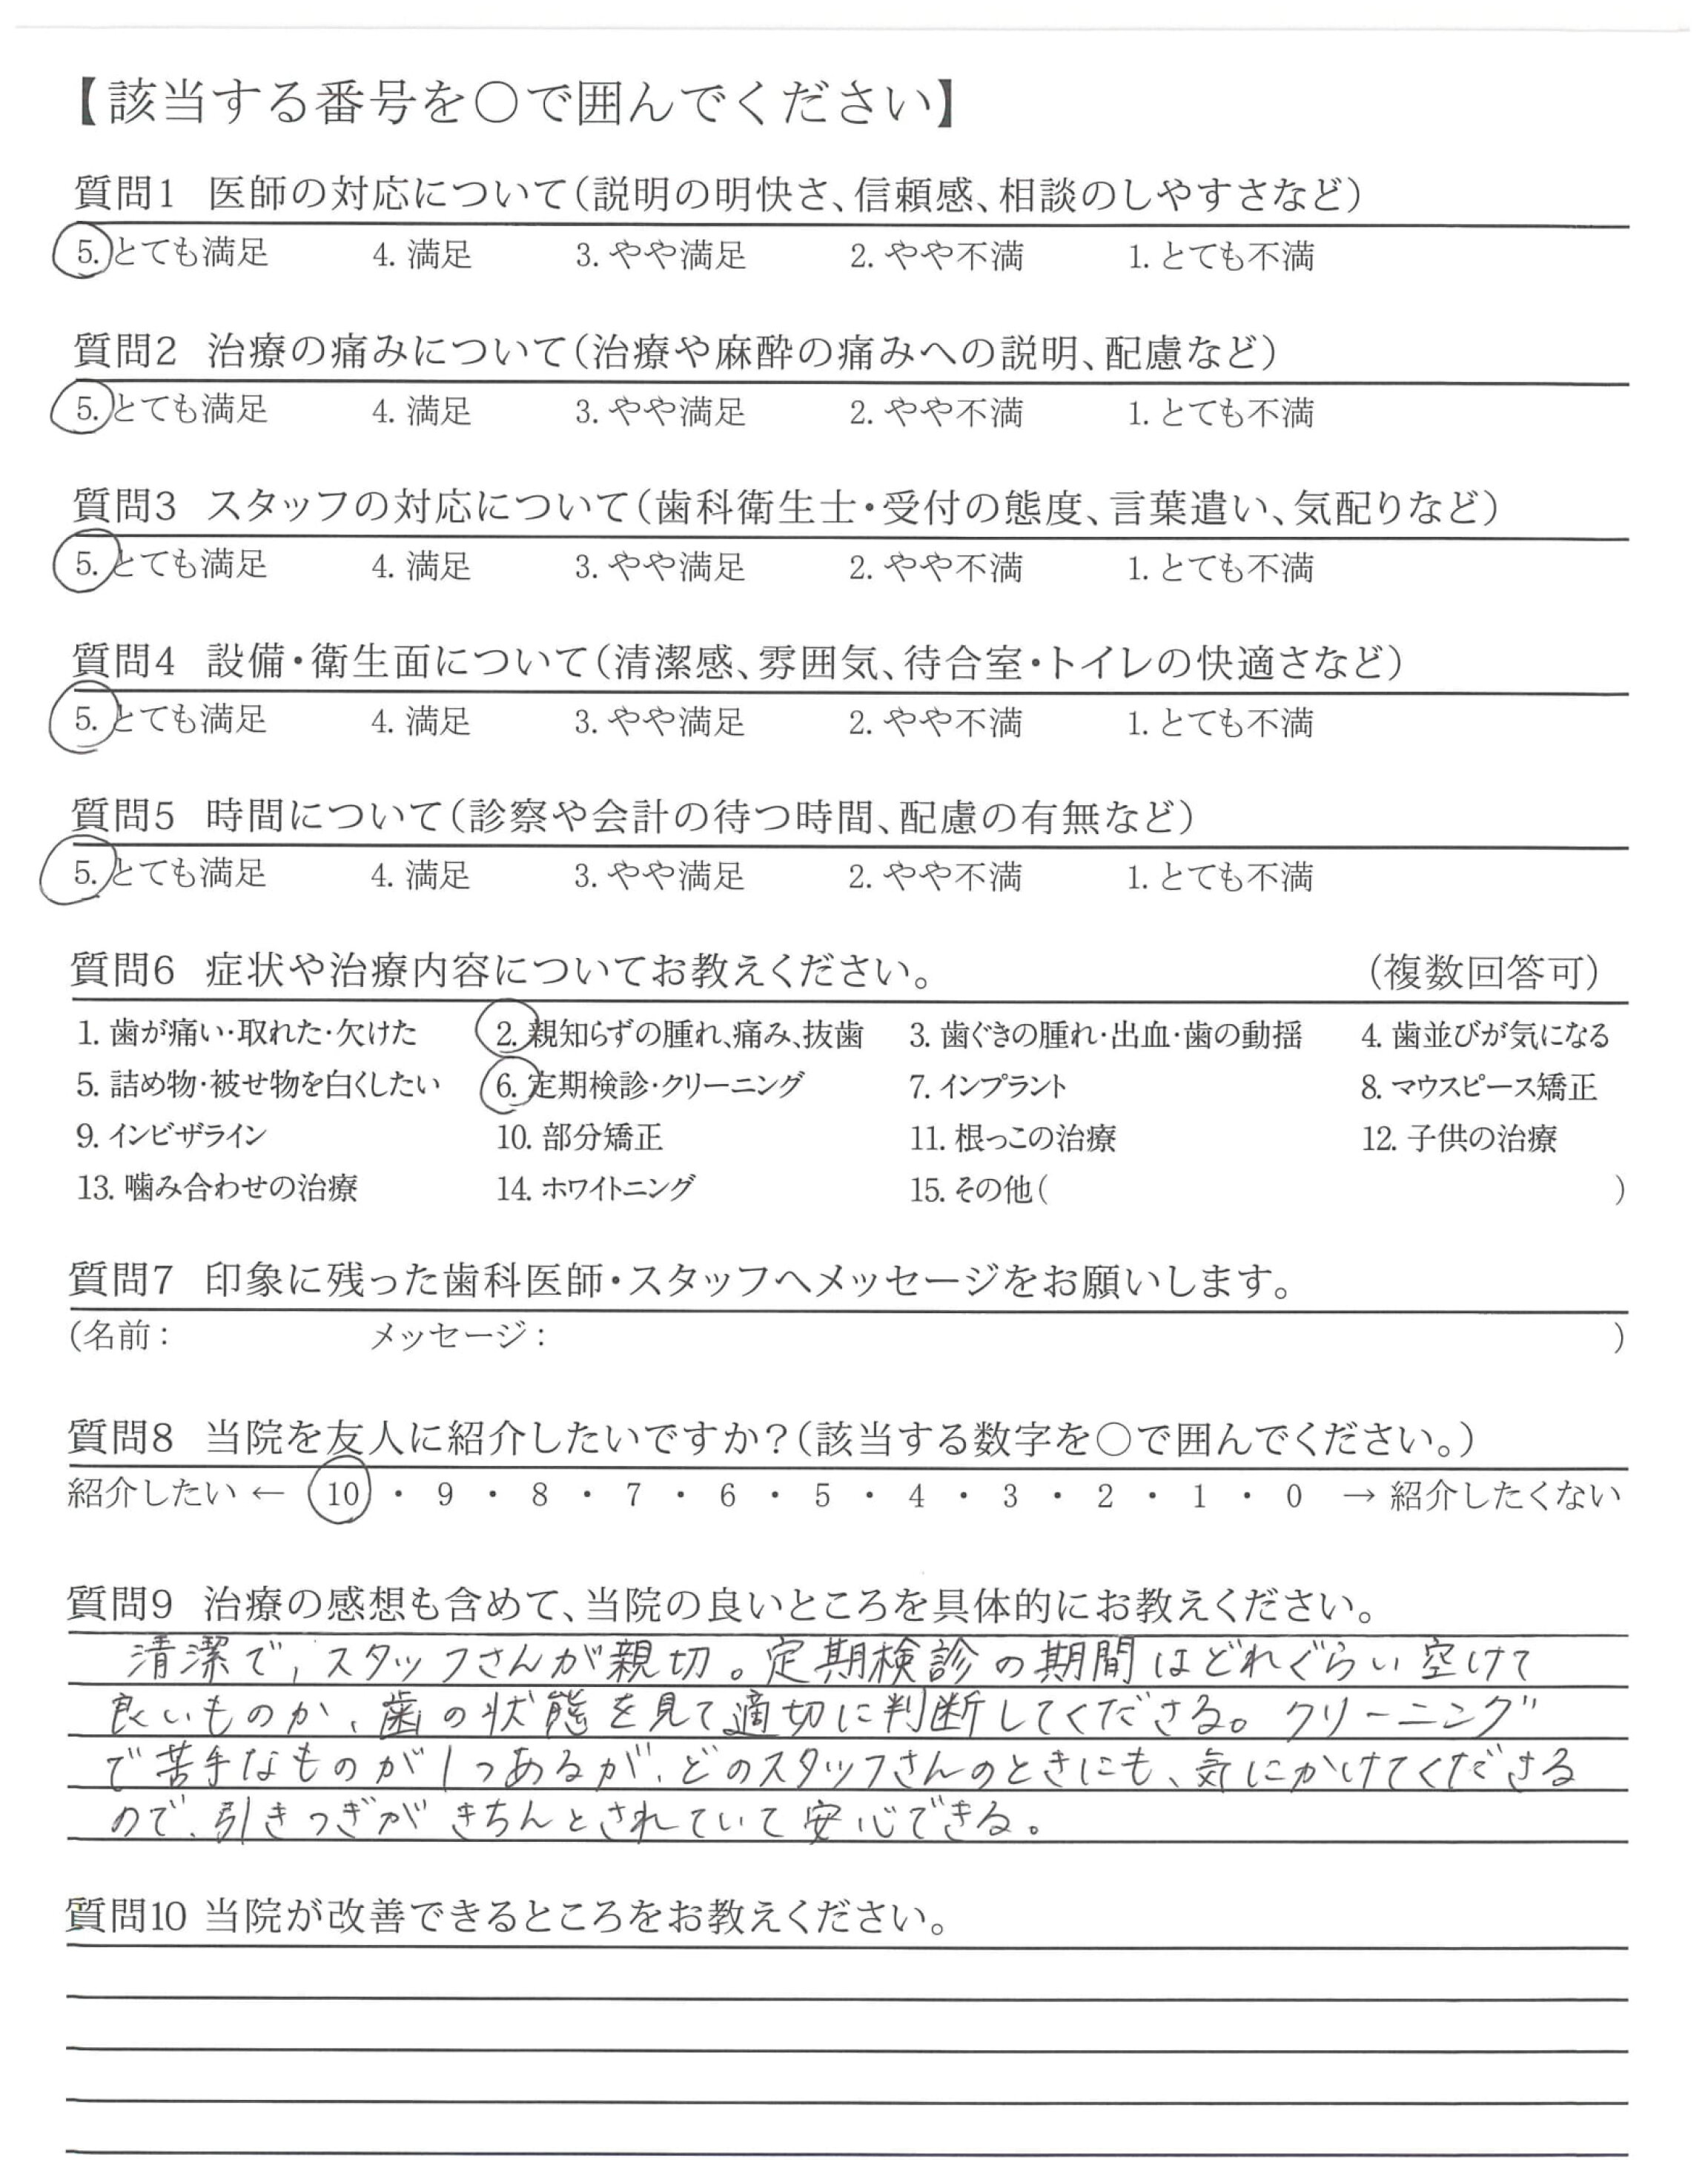 【該当する番号を〇で囲んでください】
質問1 医師の対応について(説明の明快さ、信頼感、相談のしやすさなど)
5. とても満足 4. 満足 3. やや満足 2. やや不満 1. とても不満
質問2 治療の痛みについて(治療や麻酔の痛みへの説明、配慮など)
5. とても満足 4. 満足 3. やや満足 2. やや不満 1. とても不満
質問3 スタッフの対応について(歯科衛生士・受付の態度、言葉遣い、気配りなど)
5. とても満足 4. 満足 3. やや満足 2. やや不満 1. とても不満
質問4 設備・衛生面について(清潔感、雰囲気、待合室・トイレの快適さなど)
5. とても満足 4. 満足 3. やや満足 2. やや不満 1. とても不満
質問5 時間について(診察や会計の待つ時間、配慮の有無など)
5. とても満足 4. 満足 3. やや満足 2. やや不満 1. とても不満
質問6 症状や治療内容についてお教えください。 (複数回答可)
1. 歯が痛い・取れた・欠けた 2. 親知らずの腫れ、痛み、抜歯 3. 歯ぐきの腫れ・出血・歯の動揺 4. 歯並びが気になる
5. 詰め物・被せ物を白くしたい 6. 定期検診・クリーニング 7. インプラント 8. マウスピース矯正
9. インビザライン 10. 部分矯正 11. 根っこの治療 12. 子供の治療
13. 噛み合わせの治療 14. ホワイトニング 15. その他( )
質問7 印象に残った歯科医師・スタッフへメッセージをお願いします。
(名前: メッセージ: )
質問8 当院を友人に紹介したいですか?(該当する数字を〇で囲んでください。)
紹介したい ← 10 ・ 9 ・ 8 ・ 7 ・ 6 ・ 5 ・ 4 ・ 3 ・ 2 ・ 1 ・ 0 → 紹介したくない
質問9 治療の感想も含めて、当院の良いところを具体的にお教えください。
清潔で、スタッフさんが親切。定期検診の期間はどれぐらい空けて
良いものか、歯の状態を見て適切に判断してくださる。クリーニング
で苦手なものが1つあるが、どのスタッフさんのときにも、気にかけてくださる
ので、引きつぎがきちんとされていて安心できる。
質問10 当院が改善できるところをお教えください。